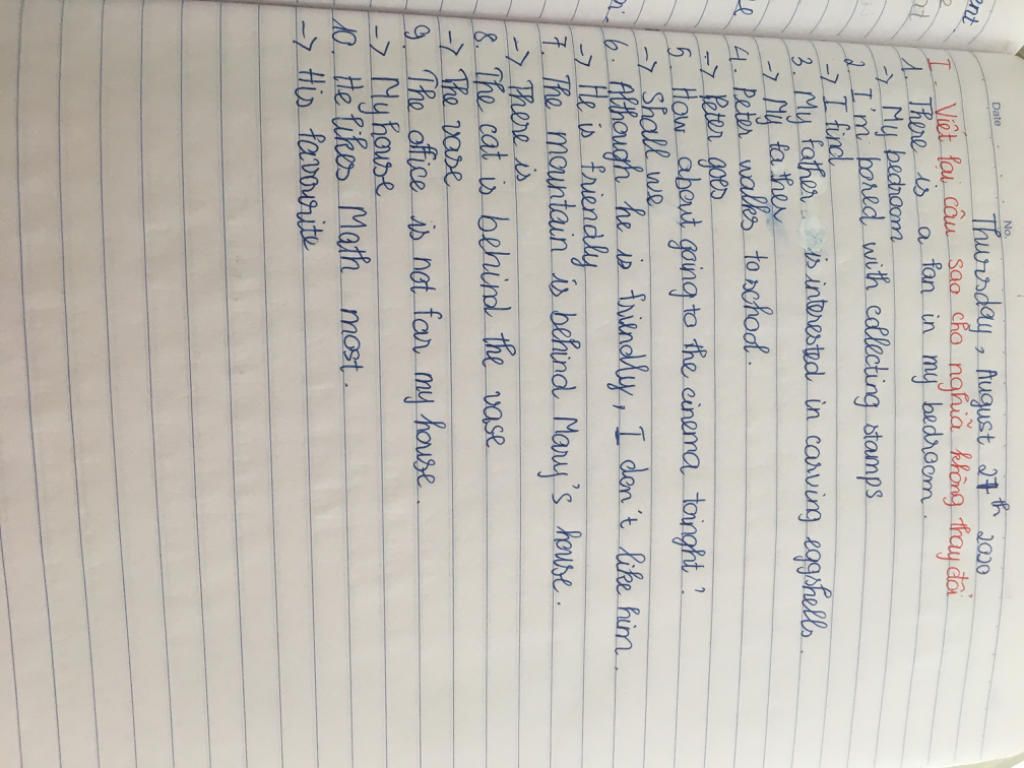 Date
No.
Thursday, August 27th 2020
I. Viết lại câu sao cho nghĩa không thay đổi
1. There is a fan in my bedroom.
-> My bedroom
2. I'm bored with collecting stamps
-> I find
3. My father is interested in carving eggshells.
-> My father
4. Peter walks to school.
-> Peter goes
5 How about going to the cinema toinght?
-> Shall we
6. Although he is friendly, I don't like him.
-> He is friendly
7. The mountain is behind Mary's house.
-> There is
8. The cat is behind the vase
-> The vase
9. The office is not far my house.
-> My house
10. He likes Math most.
-> His favourite